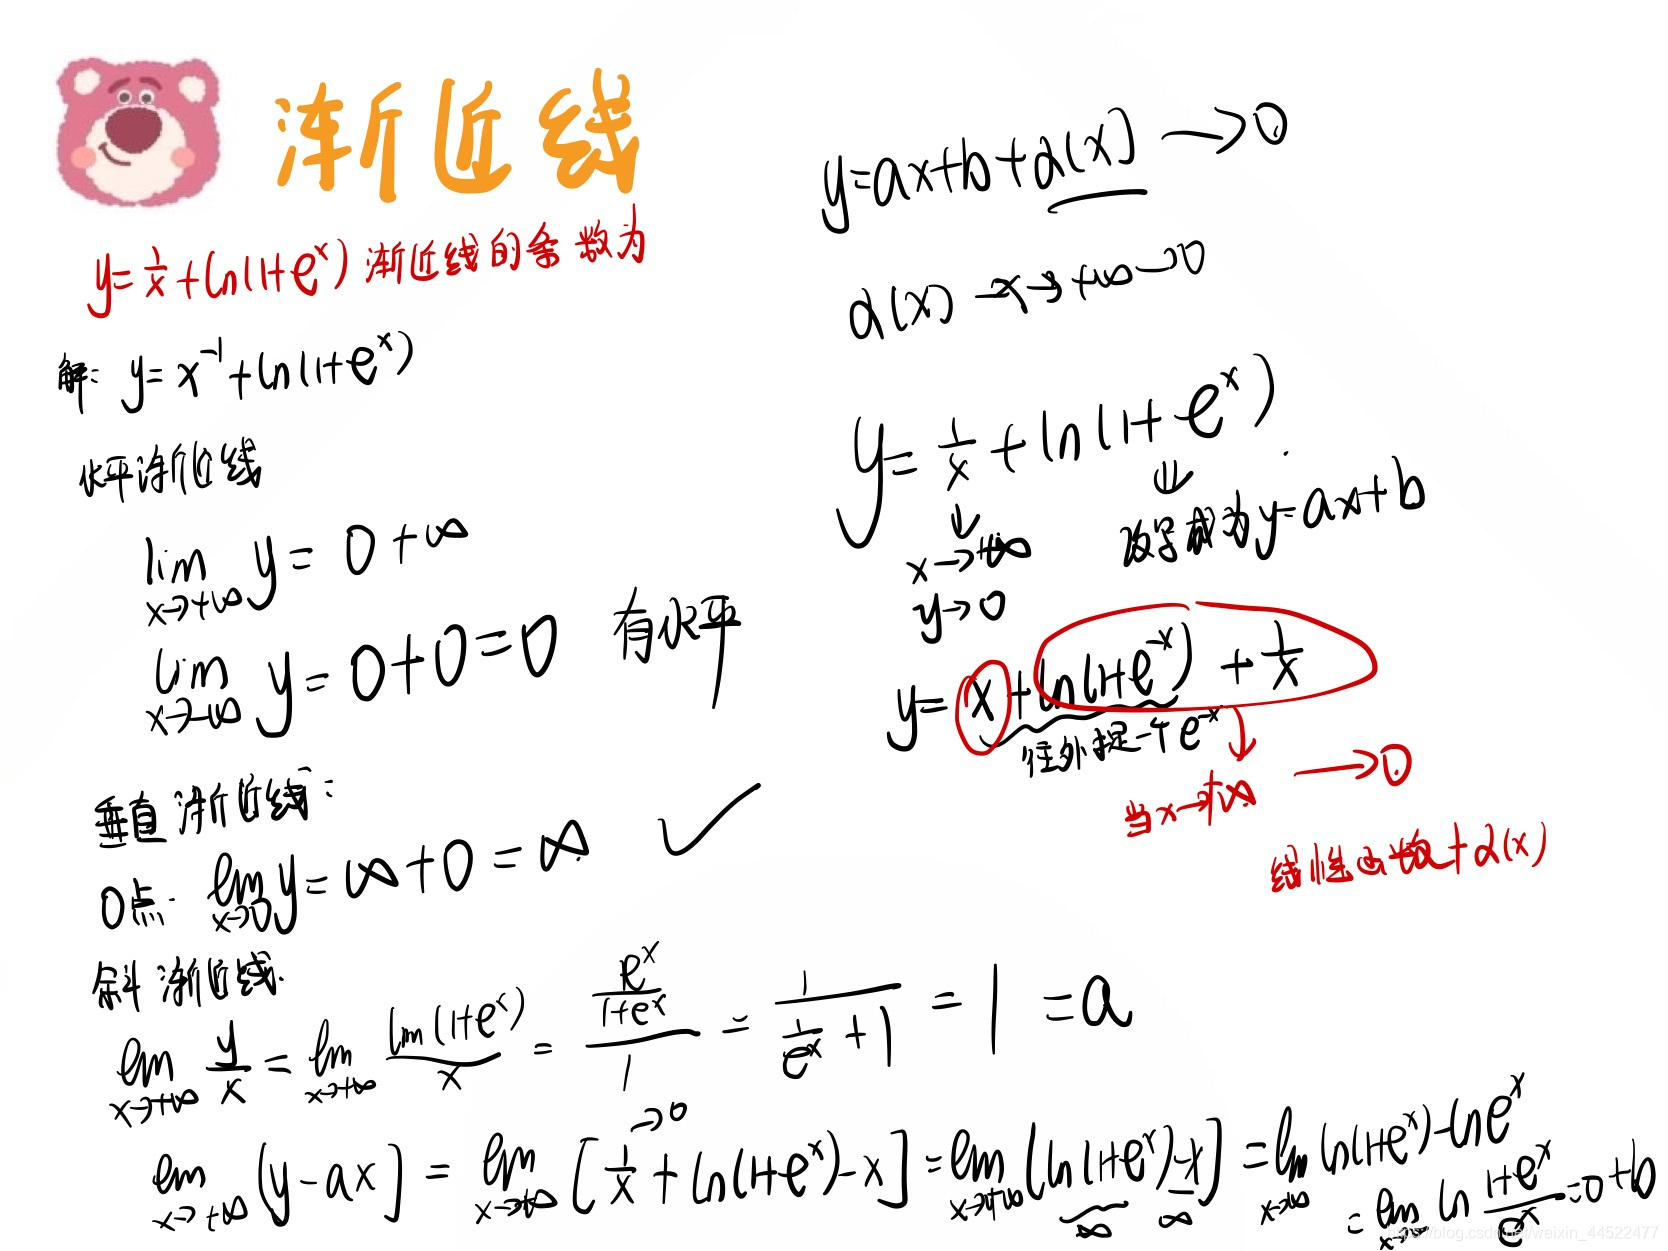 渐近线
y=1/x+ln(1+e^x) 渐近线的条数为
解: y=x^-1+ln(1+e^x)
水平渐近线
lim x→+∞ y=0+∞
lim x→-∞ y=0+0=0 有水平
垂直渐近线:
0点. lim x→0 y=∞+0=∞ ✓
斜渐近线.
lim x→+∞ y/x = lim x→+∞ ln(1+e^x)/x = (e^x/(1+e^x))/1 = 1/(1/e^x+1) = 1 =a
lim x→+∞ (y-ax] = lim x→+∞ [1/x+ln(1+e^x)-x] = lim x→+∞ (ln(1+e^x)-x] = lim x→∞ ln(1+e^x)-lne^x
→0
∞ ∞
= lim x→ ln (1+e^x)/e^x =0+b
y=ax+b+α(x) →0
α(x) x→+∞ →0
y=1/x+ln(1+e^x)
↓ ⇓
x→+∞ 改写成为y=ax+b
y→0
y=x+ln(1+e^-x)+1/x
往外提一个e^-x
当x→+∞ →0
线性函数+α(x)
https://blog.csdn.net/weixin_44522477